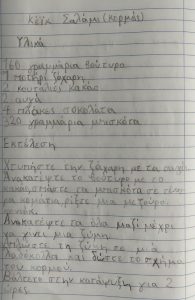 Κέικ Σαλάμι (κορμός)
Υλικά
160 γραμμάρια βούτυρο
1 ποτήρι ζάχαρη
2 κουταλιές κακάο
2 αυγά
4 πλάκες σοκολάτα
320 γραμμάρια μπισκότα
Εκτέλεση
Χτυπήστε την ζάχαρη με τα αυγά.
Ανακατέψτε το βούτυρο με το
κακάο, σπάστε τα μπισκότα σε
κομμάτια, ρίξτε μια με
Ανακατέψτε τα όλα μαζί μέχρι
να γίνει μια ζύμη.
τη ζύμη σε μια
λαδόκολλα και δώστε το σχήμα
του κορμού.
Βάλετε στην κατάψυξη για 2
ώρες.